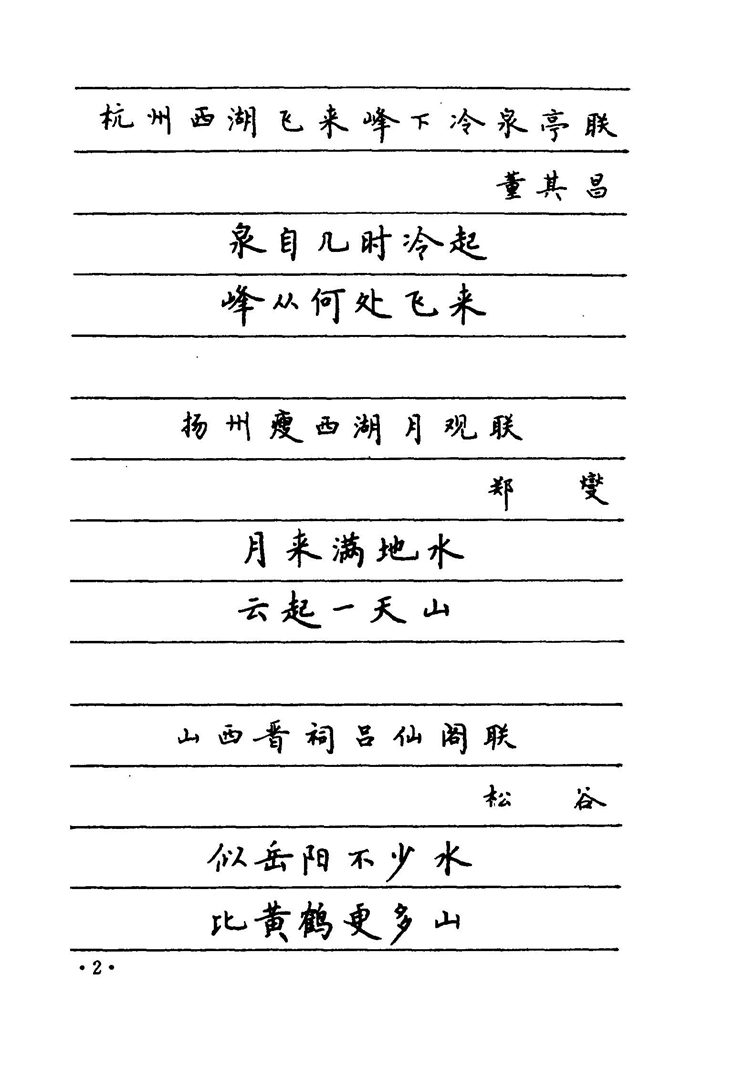 杭州西湖飞来峰下冷泉亭联
董其昌
泉自几时冷起
峰从何处飞来
扬州瘦西湖月观联
郑 燮
月来满地水
云起一天山
山西晋祠吕仙阁联
松 谷
似岳阳不少水
比黄鹤更多山
·2·